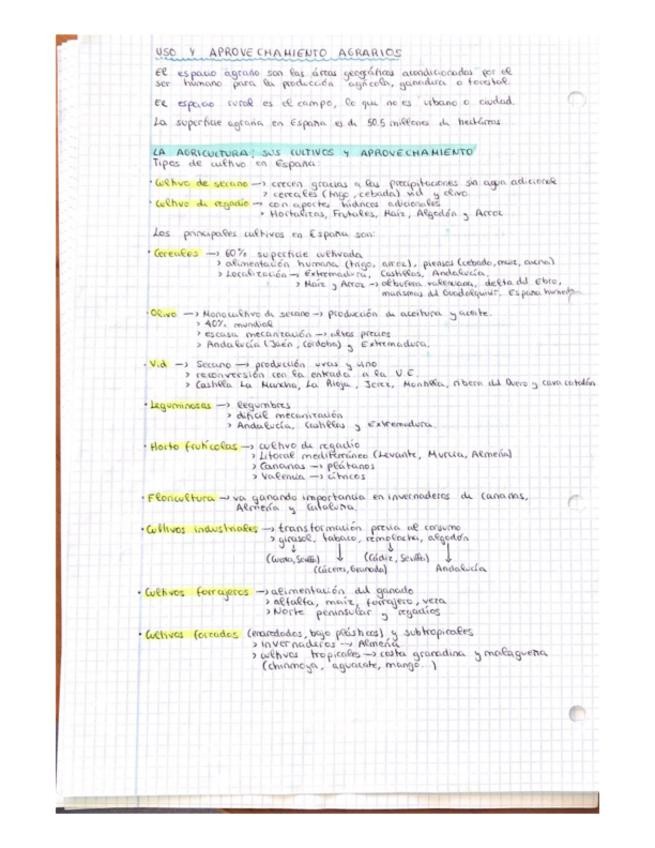 USO Y APROVECHAMIENTO AGRARIOS
El espacio agrario son las áreas geográficas acondicionadas por el
ser humano para la producción agrícola, ganadera o forestal.
El espacio rural es el campo, lo que no es urbano o ciudad.
La superficie agraria en España es de 50.5 millones de hectáreas
LA AGRICULTURA; SUS CULTIVOS Y APROVECHAMIENTO
Tipos de cultivo en España:
· Cultivo de secano → crecen gracias a las precipitaciones sin agua adicional
> cereales (trigo, cebada) vid y olivo.
· Cultivo de regadío → con aportes hídricos adicionales
> Hortalizas, Frutales, Maíz, Algodón y Arroz
Los principales cultivos en España son:
· Cereales → 60% superficie cultivada
> alimentación humana (trigo, arroz), piensos (cebada, maiz, avena)
> Localización → Extremadura, Castillas, Andalucía.
> Maíz y Arroz → albufera valenciana, delta del Ebro,
marismas del Guadalquivir, España humeda
· Olivo → Monocultivo de secano → producción de aceituna y aceite.
> 40% mundial
> escasa mecanización → altos precios
> Andalucía (Jaén, Córdoba) y Extremadura.
· Vid → Secano → producción uvas y vino
> reconversión con la entrada a la U.E.
> Castilla La Mancha, La Rioja, Jerez, Montilla, ribera del Duero y cava catalán
· Leguminosas → legumbres
> dificil mecanización
> Andalucía, Castillas y Extremadura.
· Horto frutícolas → cultivo de regadío
> Litoral mediterráneo (Levante, Murcia, Almería)
> Canarias → plátanos
> Valencia → cítricos
· Floricultura → va ganando importancia en invernaderos de canarias,
Almería y Cataluña.
· Cultivos industriales → transformación previa al consumo
> girasol, tabaco, remolacha, algodón
↓ ↓ ↓ ↓
(Sevilla) (Cádiz, Sevilla)
(Cáceres, Granada) Andalucía
· Cultivos forrajeros → alimentación del ganado
> alfalfa, maiz, forrajero, veza
> Norte peninsular y regadíos
· Cultivos forzados (enarenados, bajo plásticos) y subtropicales
> invernaderos → Almería
> cultivos tropicales → costa granadina y malagueña
(chirimoya, aguacate, mango...)